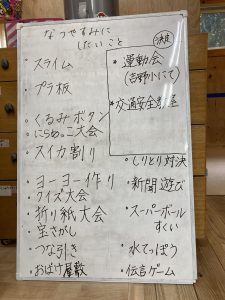 なつやすみに
したいこと
・スライム
・プラ板
・くるみボタン
・にらめっこ大会
・スイカ割り
・ヨーヨー作り
・クイズ大会
・折り紙大会
・宝さがし
・つな引き
・おばけ屋敷
決定
*運動会
(吉野小にて)
*交通安全教室
・しりとり対決
・新聞遊び
・スーパーボール
すくい
・水てっぽう
・伝言ゲーム